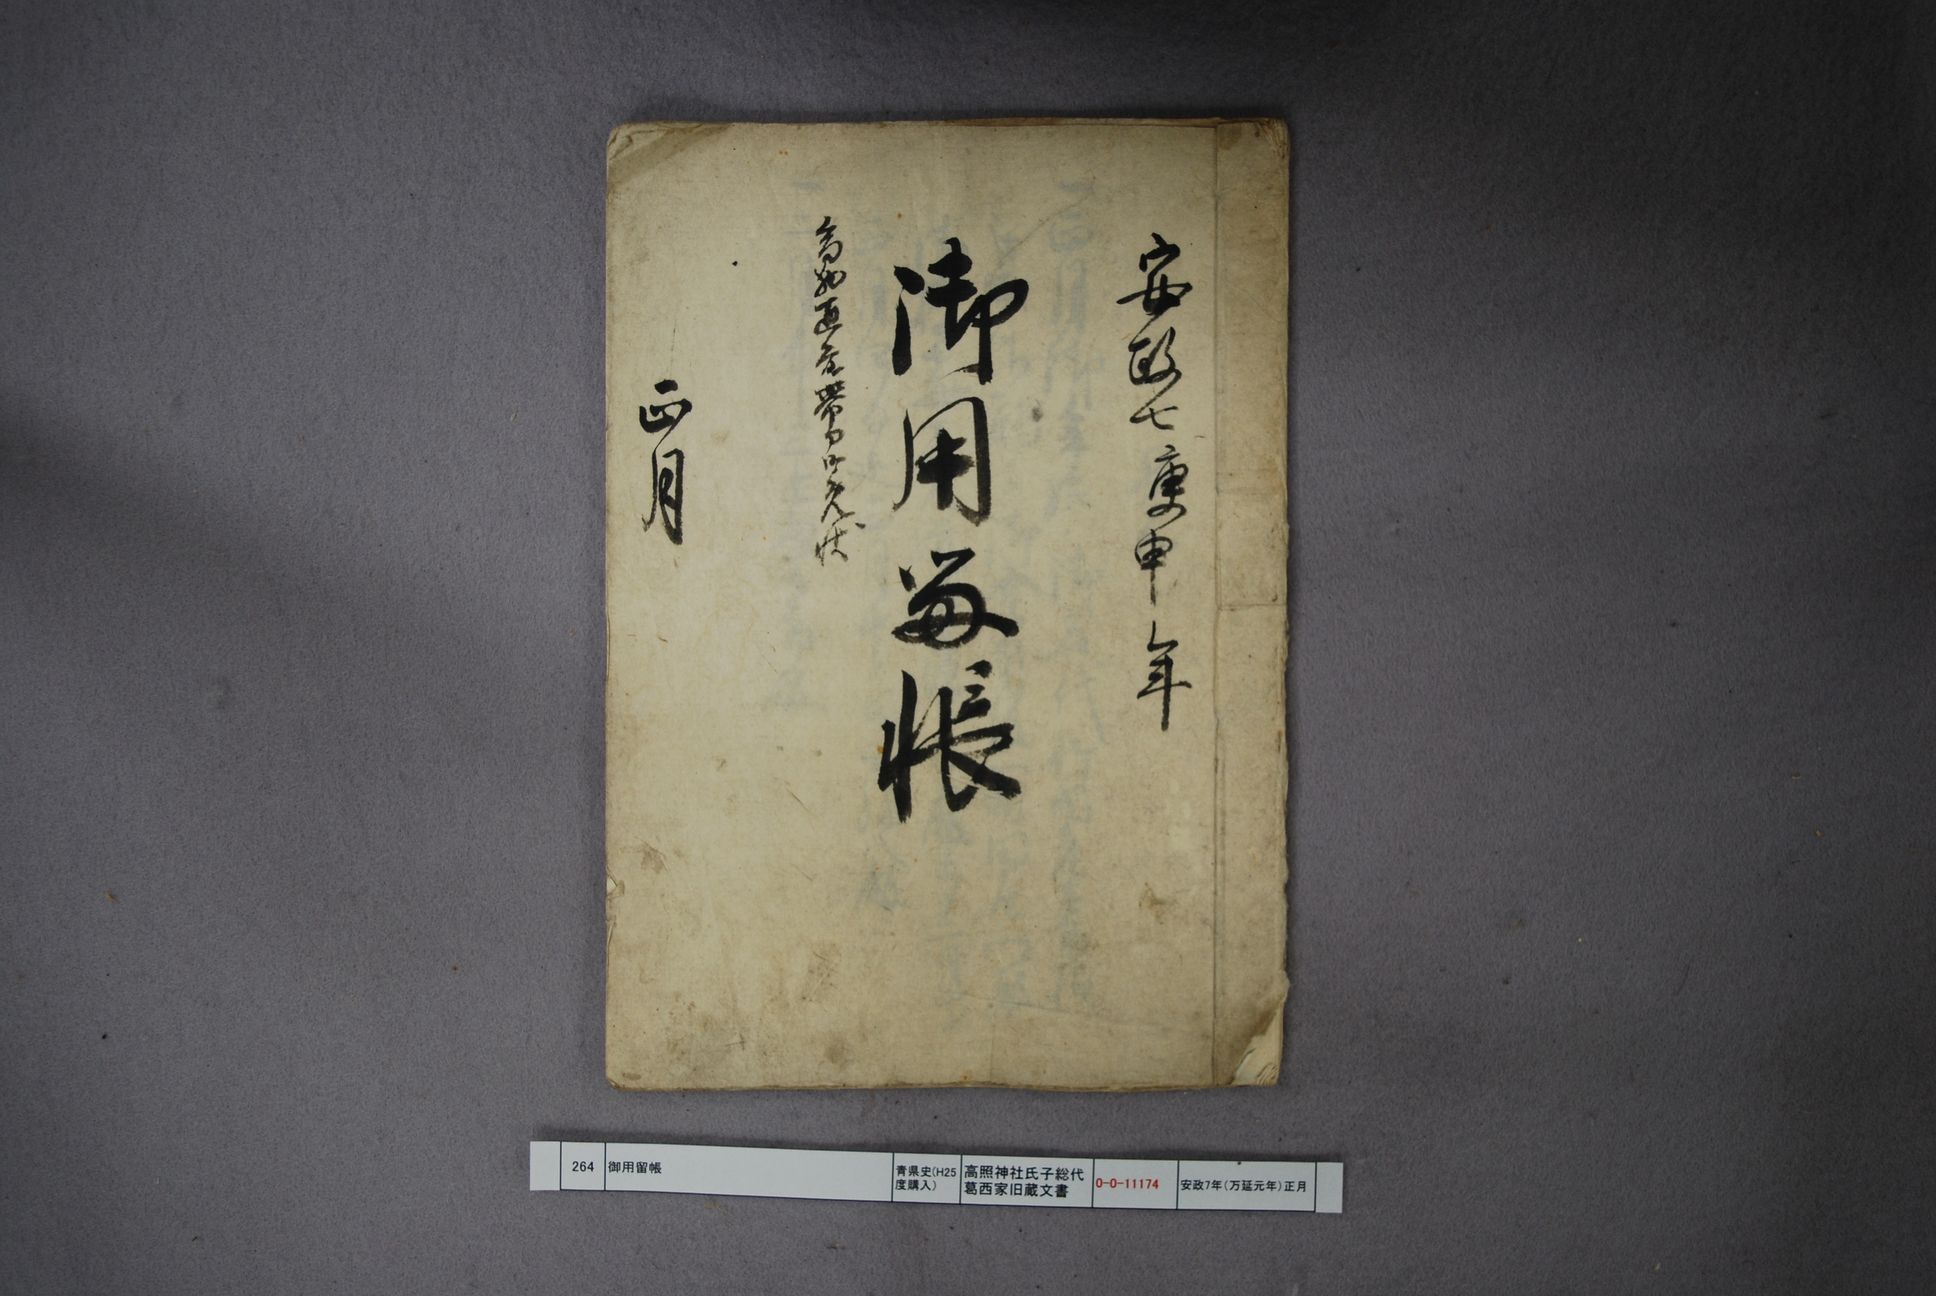 安政七庚申年
御用留帳
正月
264
御用留帳
青県史(H25
度購入)
高照神社氏子総代
葛西家旧蔵文書
0-0-11174
安政7年(万延元年)正月